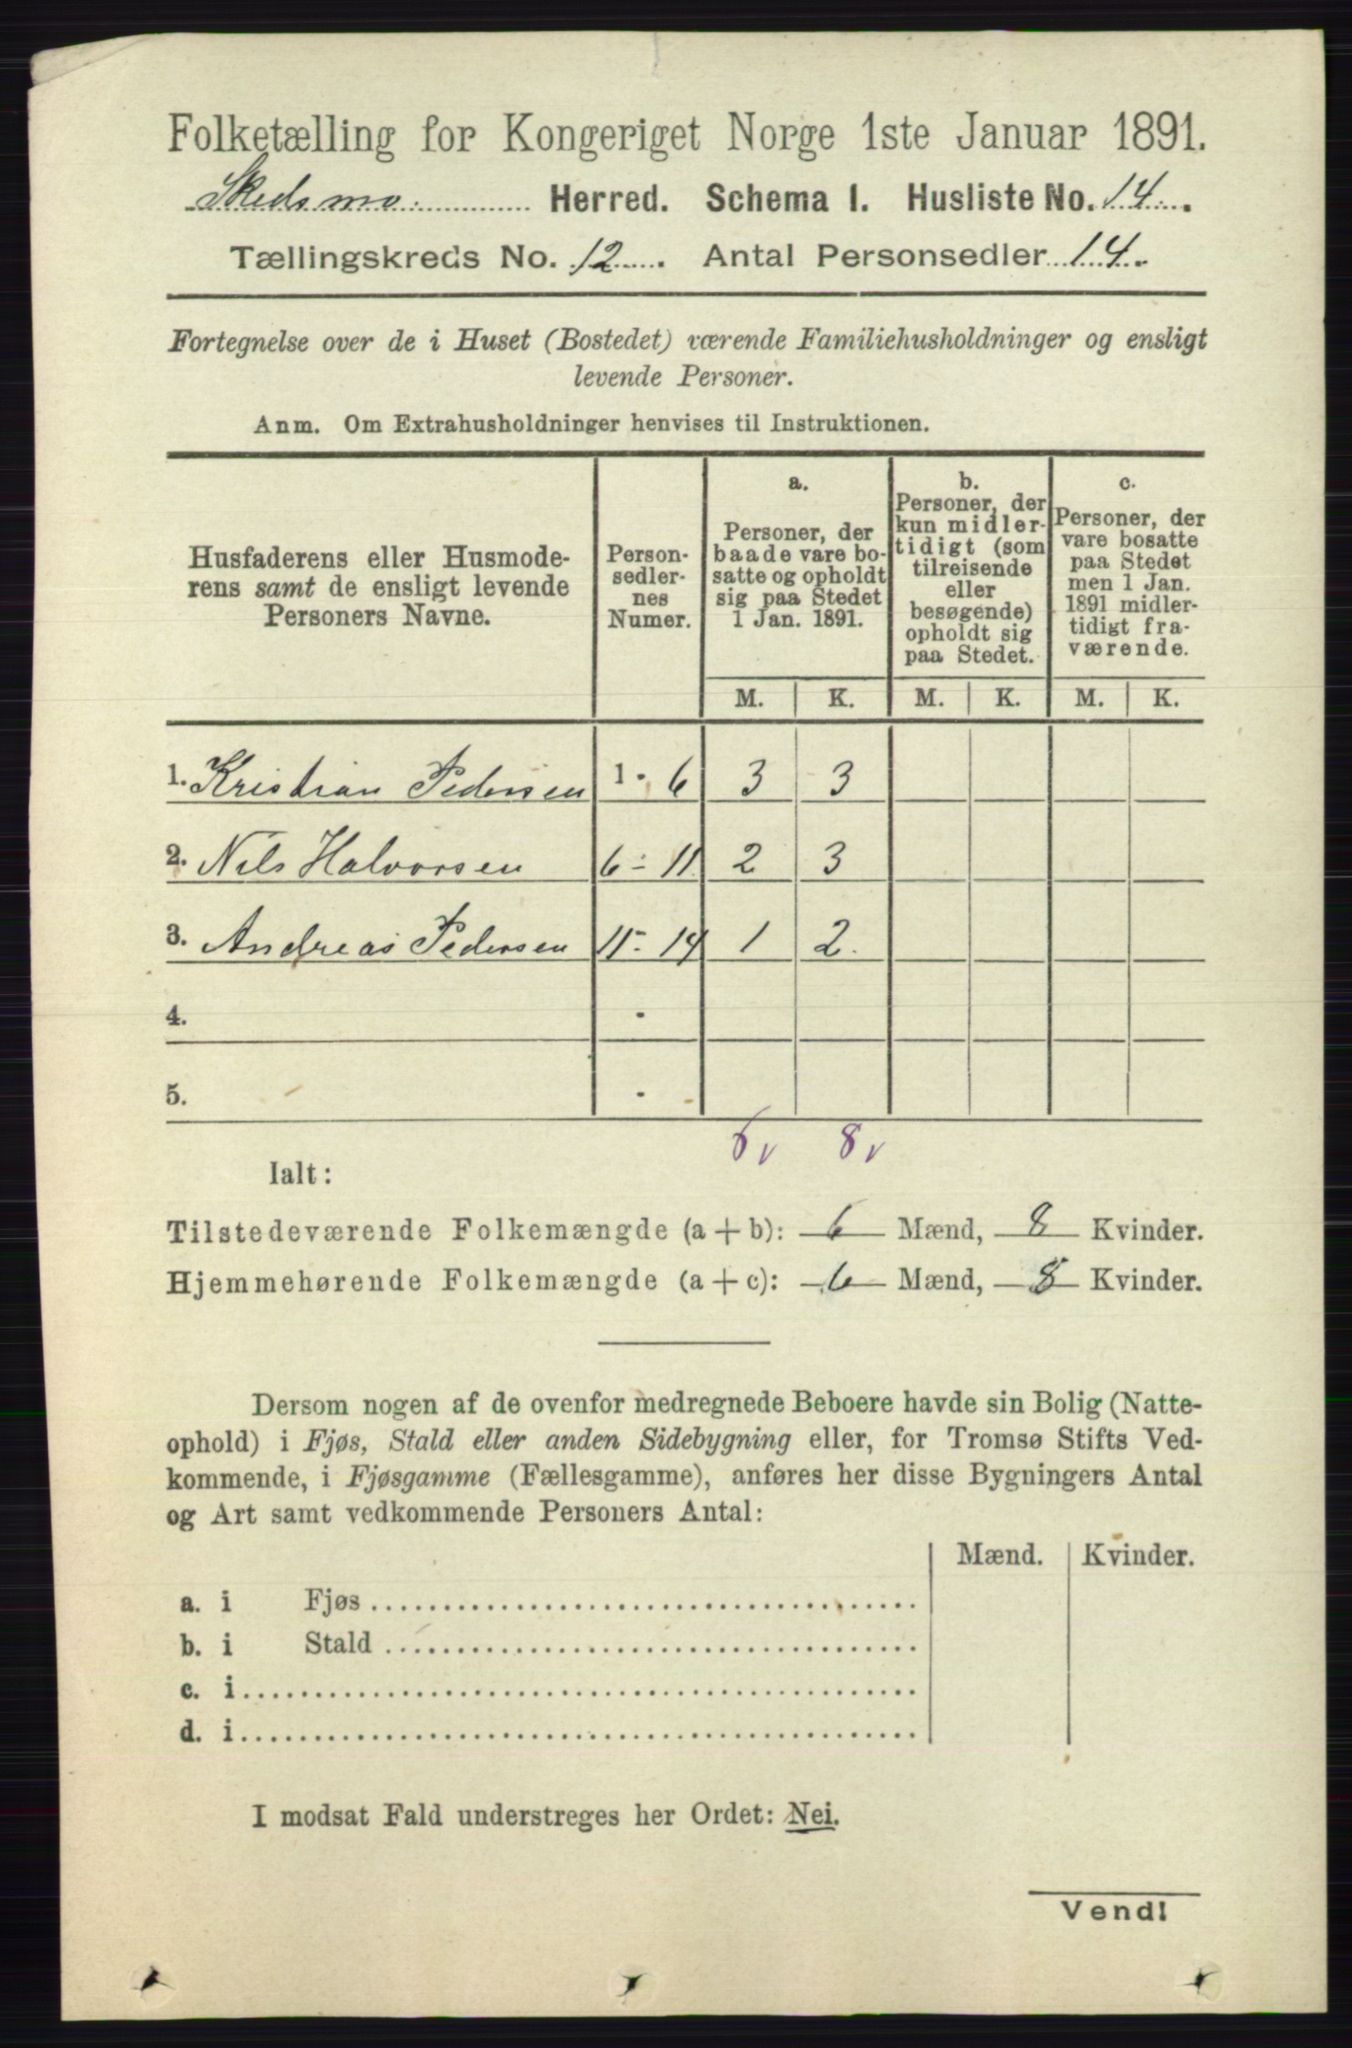 Folketælling for Kongeriget Norge 1ste Januar 1891.
Skedsmo Herred. Schema 1. Husliste No. 14.
Tællingskreds No. 12. Antal Personsedler 14.
Fortegnelse over de i Huset (Bostedet) værende Familiehusholdninger og ensligt
levende Personer.
Anm. Om Extrahusholdninger henvises til Instruktionen.
Husfaderens eller Husmode-
rens samt de ensligt levende
Personers Navne.
Person-
sedler-
nes
Numer.
a.
Personer, der
baade vare bo-
satte og opholdt
sig paa Stedet
1 Jan. 1891.
b.
Personer, der
kun midler-
tidigt (som
tilreisende
eller
besøgende)
opholdt sig
paa Stedet.
c.
Personer, der
vare bosatte
paa Stedet
men 1 Jan.
1891 midler-
tidigt fra-
værende.
M. K. M. K. M. K.
1. Kristian Pedersen 1 - 6 3 3
2. Nils Halvorsen 6 - 11 2 3
3. Andreas Pedersen 11 - 14 1 2.
4. -
5. -
6 v 8 v
Ialt:
Tilstedeværende Folkemængde (a + b): 6 Mænd, 8 Kvinder.
Hjemmehørende Folkemængde (a + c): 6 Mænd, 8 Kvinder.
Dersom nogen af de ovenfor medregnede Beboere havde sin Bolig (Natte-
ophold) i Fjøs, Stald eller anden Sidebygning eller, for Tromsø Stifts Ved-
kommende, i Fjøsgamme (Fællesgamme), anføres her disse Bygningers Antal
og Art samt vedkommende Personers Antal:
Mænd. Kvinder.
a. i Fjøs
b. i Stald
c. i
d. i
I modsat Fald understreges her Ordet: Nei.
Vend!